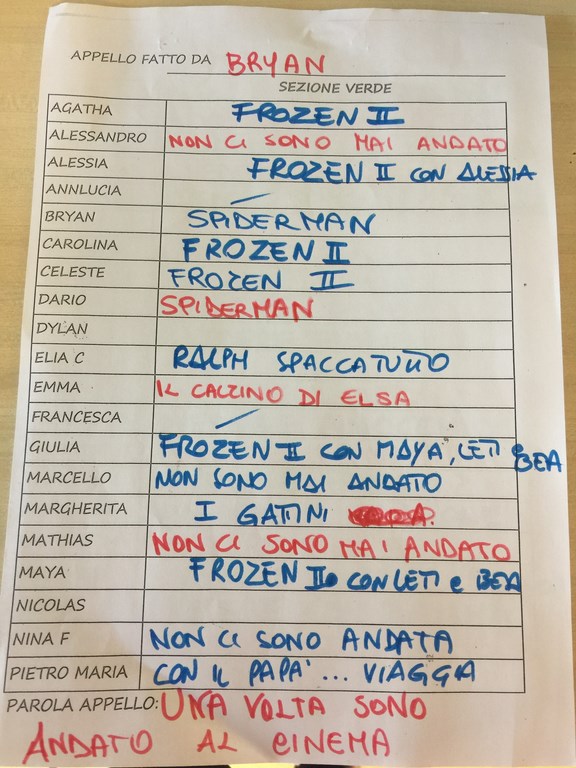 APPELLO FATTO DA BRYAN
SEZIONE VERDE
AGATHA FROZEN II
ALESSANDRO NON CI SONO MAI ANDATO
ALESSIA FROZEN II CON ALESSIA
ANNLUCIA
BRYAN SPIDERMAN
CAROLINA FROZEN II
CELESTE FROZEN II
DARIO SPIDERMAN
DYLAN
ELIA C RALPH SPACCATUTTO
EMMA IL CALZINO DI ELSA
FRANCESCA
GIULIA FROZEN II CON MAYA, LETI e BEA
MARCELLO NON SONO MAI ANDATO
MARGHERITA I GATTINI
MATHIAS NON CI SONO MAI ANDATO
MAYA FROZEN II CON LETI e BEA
NICOLAS
NINA F NON CI SONO ANDATA
PIETRO MARIA CON IL PAPA' ... VIAGGIA
PAROLA APPELLO: UNA VOLTA SONO
ANDATO AL CINEMA